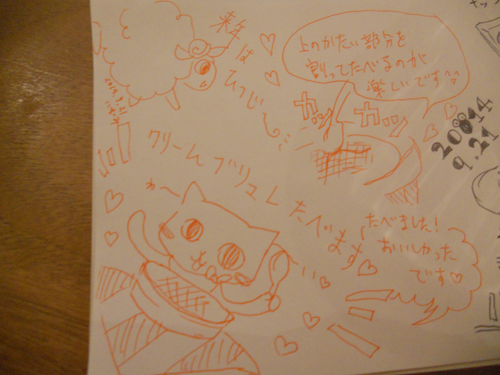 来年
は
ひつじ
2014.9.21
上のかたい部分を
割ってたべるのが
楽しいです
ガッ
ガッ
2014
9.21
クリームブリュレ
わ〜
たべます
たべました!
おいしかった
です♡